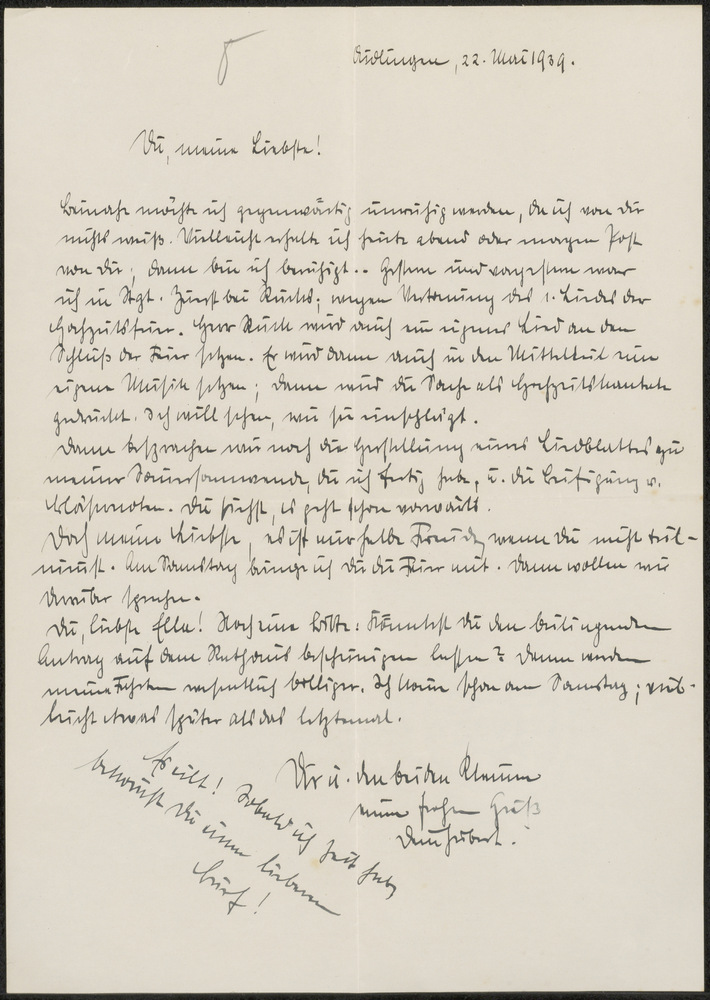 Aidlingen, 22. Mai 1939.
Du, meine Liebste!
Beinahe möchte ich gegenwärtig unruhig werden, da ich von Dir
nichts weiß. Vielleicht erhalte ich heute abend oder morgen Post
von Dir; dann bin ich beruhigt.. Gestern und vorgestern war
ich in Stgt. Zuerst bei wegen Vertonung des 1. Liedes der
Hochzeitsfeier. Herr wird auch ein eigenes Lied an den
Schluß der Feier setzen. Er wird dann auch in den Mittelteil eine
eigene Musik setzen; dann wird die Sache als Hochzeitskantate
gedruckt. Ich will sehen, wie sie einschlägt.
Dann besprachen wir noch die Herstellung eines Liedblattes zu
meiner die ich fertig habe, u. die Beifügung v.
Bläsernoten. Du siehst, es geht schon vorwärts.
Doch meine Liebste, es ist nur halbe Freude, wenn Du nicht teil-
nimmst. Am Samstag bringe ich Dir die Feier mit. Dann wollen wir
darüber sprechen.
Du, liebste Ella! Noch eine Bitte: Könntest Du den beiliegenden
Antrag auf dem Rathaus bescheinigen lassen? Dann werden
meine Fahrten wesentlich billiger. Ich komme schon am Samstag; viel-
leicht etwas später als das letztemal.
Dir u. den beiden Kleinen
einen frohen Gruß
Dein Hubert.
Es eilt! Sobald ich Zeit habe,
bekommst Du einen lieberen
Brief!